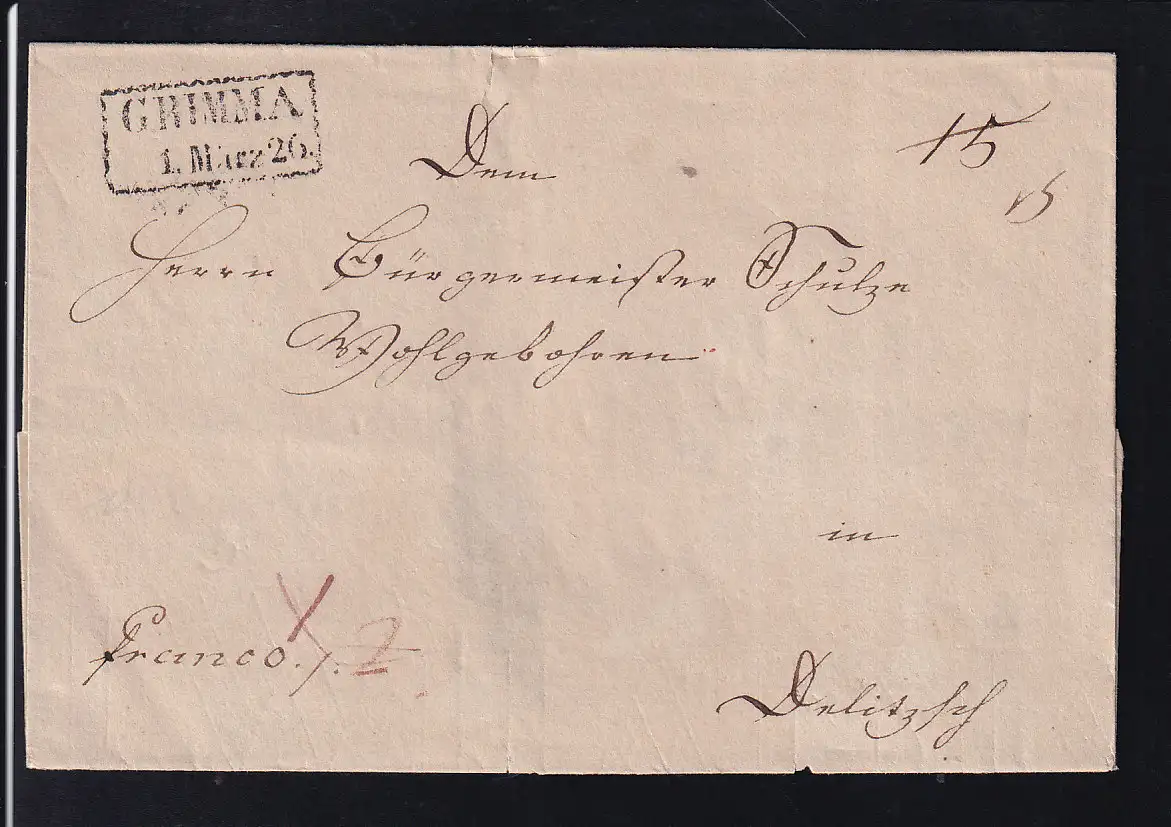 GRIMMA
1. März 26.
Dem
15
15
Herrn Bürgermeister Schulze
Wohlgebohren
in
Franco. 2
Delitzsch